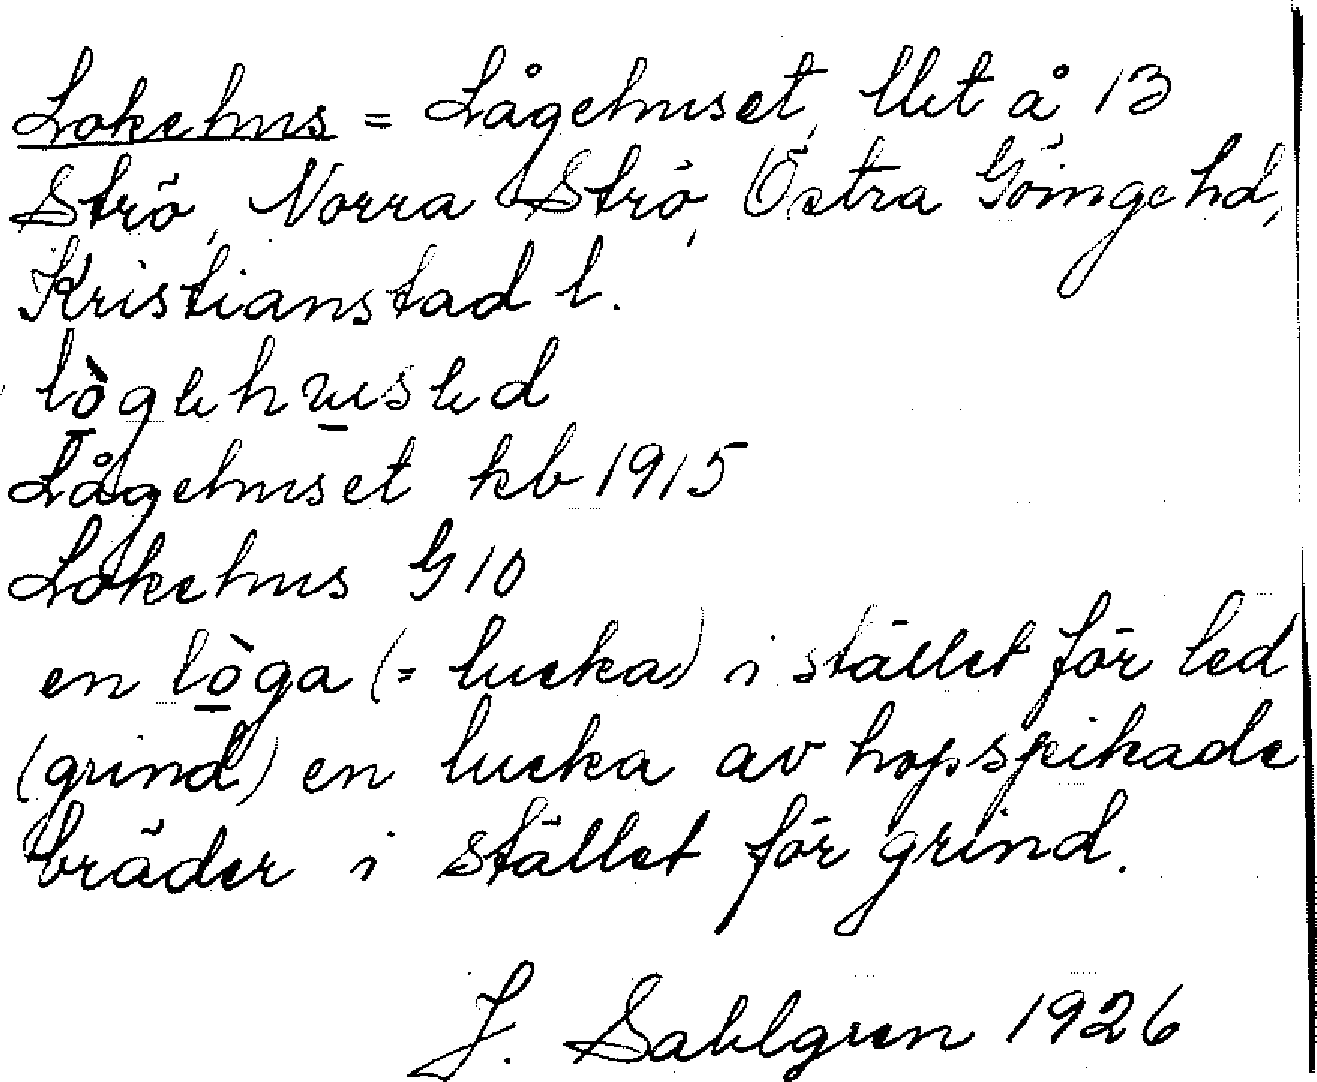 Lokehus = Lågehuset, llet å 13
Strö, Norra Strö, Östra Göinge hd,
Kristianstad l.
Lågehuset kb 1915
Lokehus G 10
en lòga (= lucka) i stället för led
(grind) en lucka av hopspikade
bräder i stället för grind.
J. Sahlgren 1926